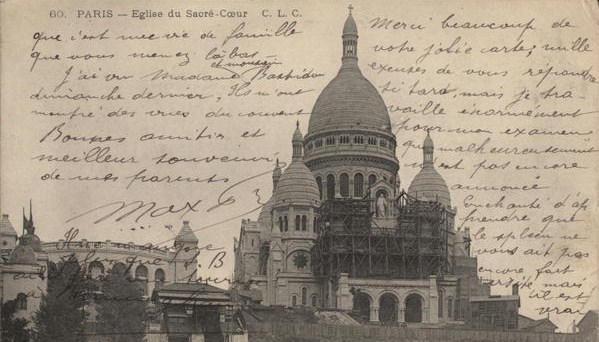 60. PARIS — Eglise du Sacré-Cœur C. L. C.
Merci beaucoup de
votre jolie carte, mille
excuses de vous répondre
si tard, mais je tra-
vaille énormément
pour mon examen
qui malheureusement
n'est pas encore
annoncé
Enchanté d'ap
prendre que
le spleen ne
vous ait pas
encore fait
mais
il est
vrai
que c'est une vie de famille
que vous menez là bas
J'ai vu Madame
dimanche dernier, Ils m'ont
montré des vues du couvent
Bonnes amitiés et
meilleur souvenir
de mes parents
Max